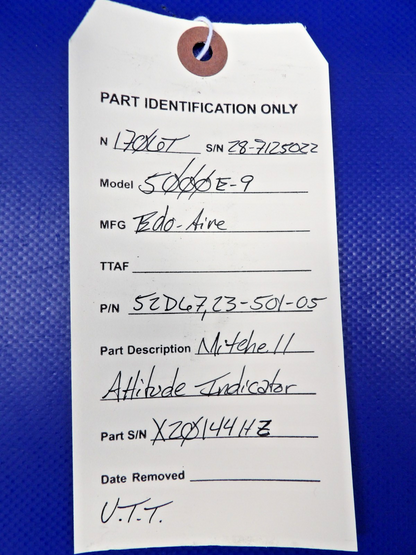 PART IDENTIFICATION ONLY
N 1706T S/N 28-7125022
Model 5000E-9
MFG Edo-Aire
TTAF
P/N 52D67, 23-501-05
Part Description Mitchell
Attitude Indicator
Part S/N X20144HZ
Date Removed
U.T.T.